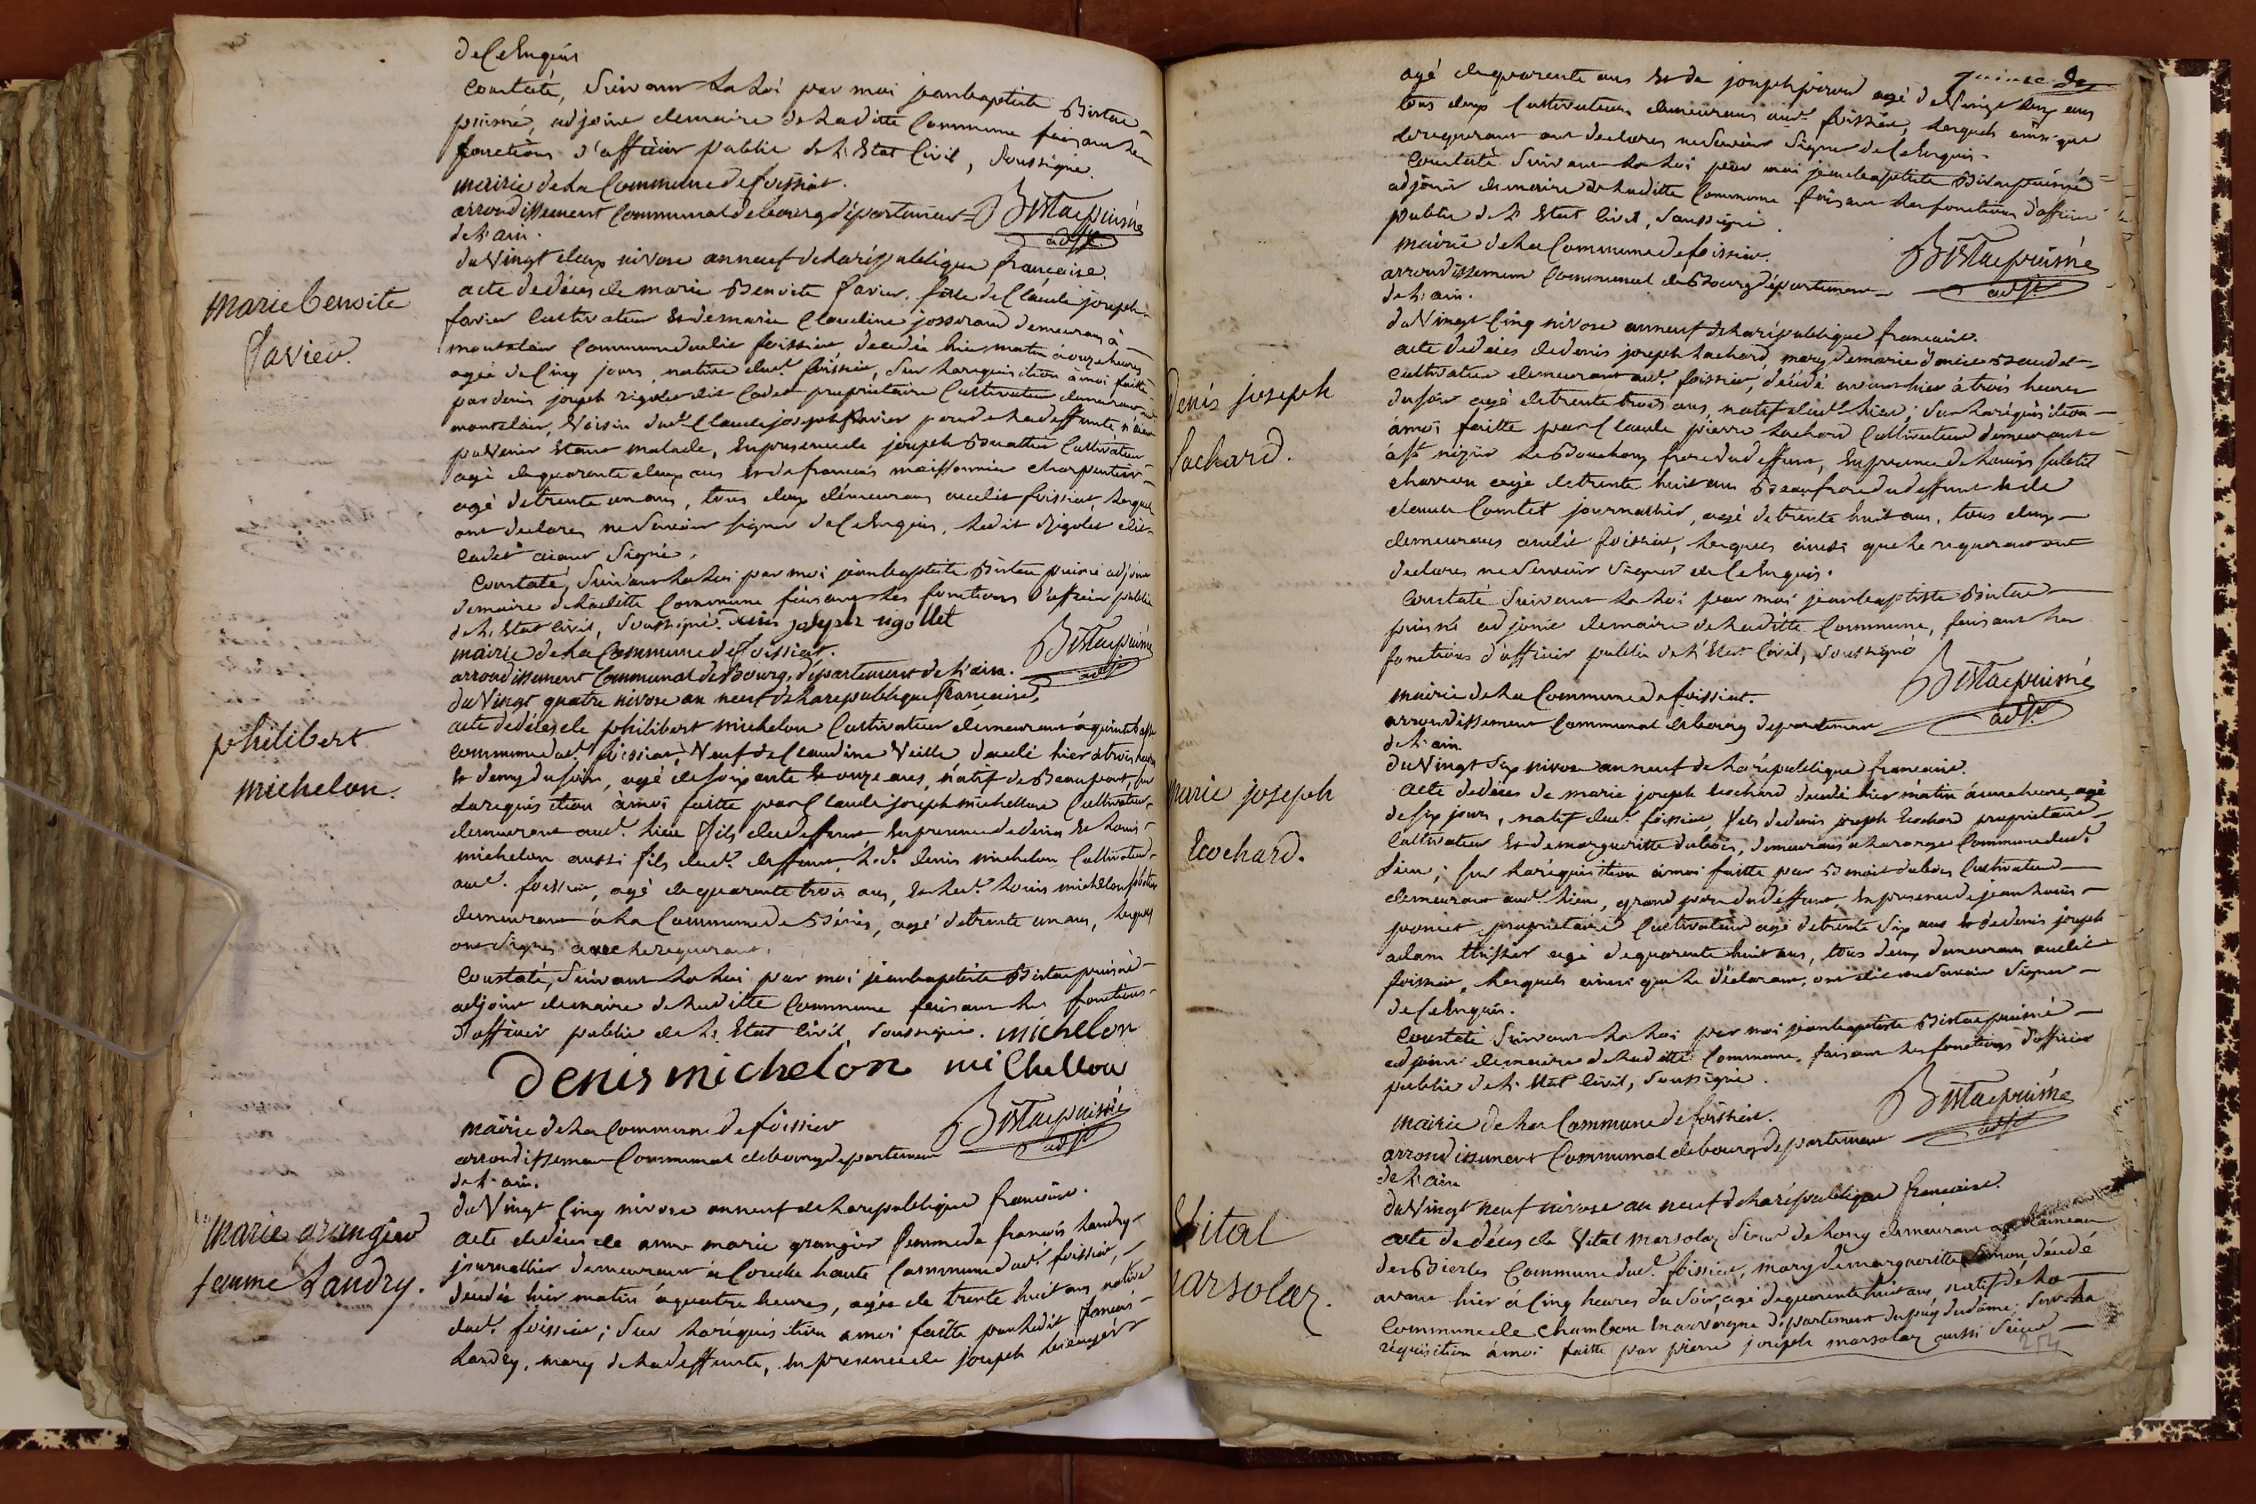 de ce enquis
Constaté, Suivant La Loi par moi jean baptiste Bistac
puisné, adjoint de maire de La ditte Commune faisant les
fonctions d'officier public de L'Etat Civil, Soussigné.
Mairie de La Commune de foissiat.
arrondissement Communal de bourg département
de L'ain.
Bistac puisné
adjt
du Vingt deux nivose an neuf de La république française.
marie benoite
favier.
acte de décès de marie Benoite favier, fille de Claude joseph
favier Cultivateur et de marie Claudine josserand demeurans à
montclair Commune dudit foissiat, decedée hier matin à onze heures
agée de Cinq jours, native dudt foissiat, Sur La requisition à moi faitte
par denis joseph rigolet dit Cadet proprietaire Cultivateur demeurant
montclair, Voisin dudt Claude joseph favier pere de La deffunte, n'aiant
pu Venir Etant malade, En presence de joseph Buattier Cultivateur
agé de quarente deux ans Et de francois maissonnier charpentier
agé de trente un ans, tous deux démeurans audit foissiat, Lesquels
ont declarés ne Savoir signer de Ce Enquis, Ledit Rigolet dit
Cadet aiant Signé.
Constaté, Suivant La Loi par moi jean baptiste Bistac puisné adjoint
de maire de La ditte Commune faisant Les fonctions d'officier public
de L'Etat Civil, Soussigné. denis joseph rigollet
Bistac puisné
adjt
mairie de La Commune de foissiat.
arrondissement Communal de Bourg, département de L'ain.
du Vingt quatre nivose an neuf de La republique française.
philibert
michelon.
acte de décès de philibert michelon Cultivateur demeurant à
Commune dudt foissiat, Veuf de Claudine Veille decedé hier à trois heures
Et demy du soir, agé de soixante Et onze ans, natif de Beaupont, sur
La requisition à moi faitte par Claude joseph michellon Cultivateur
demeurant audt Lieu fils du deffunt, En presence de denis Et Louis
michelon aussi fils dudt deffunt, Ledt denis michelon Cultivateur
audt foissiat, agé de quarente trois ans, Et Ledt Louis michelon
demeurant à La Commune de Bény, agé de trente un ans, Lesquels
ont Signés avec Le requerant.
Constaté, Suivant La Loi par moi jean baptiste Bistac puisné
adjoint de maire de La ditte Commune faisant Les fonctions
d'officier public de L'Etat Civil, Soussigné. michelon
denis michelon michellon
Bistac puisné
adjt
mairie de La Commune de foissiat
arrondissement Communal de bourg departement
de L'ain.
du Vingt Cinq nivose an neuf de La republique française.
marie grangier
femme Landry.
acte de décès de anne marie grangier femme de francois Landry
journallier demeurant à Coucke haute Commune dudt foissiat,
décédée hier matin à quatre heures, agée de trente huit ans, native
dudt foissiat; Sur La réquisition à moi faitte par Ledit francois
Landry, mary de La deffunte, En presence de joseph
quinze
agé de quarente ans Et de joseph agé de Vingt Six ans
tous deux Cultivateurs demeurans audt foissiat, Lesquels ainsi que
Le requerant ont declarés ne Savoir Signer de Ce Enquis.
Constaté Suivant La Loi par moi jean baptiste Bistac puisné
adjoint de maire de La ditte Commune faisant Les fonctions d'officier
public de L'Etat Civil, Soussigné.
Bistac puisné
adjt
mairie de La Commune de foissiat.
arrondissement Communal de Bourg département
de L'ain.
du Vingt Cinq nivose an neuf de La république française.
Denis joseph
Lachard.
acte de décès de denis joseph Lachard, mary de marie denise Baudet
Cultivateur demeurant audt foissiat, décédé avant hier à trois heures
du soir agé de trente trois ans, natif dudt Lieu; Sur La réquisition
à moi faitte par Claude pierre Lachard Cultivateur demeurant
à St nizier Le Bouchoux frere du deffunt, En presence de Louis
charron agé de trente huit ans Beaufrere du deffunt Et de
claude Comtet journallier, agé de trente huit ans, tous deux
demeurans audit foissiat, Lesquels ainsi que Le requerant ont
declarés ne Savoir Signer de Ce Enquis.
Constaté Suivant La Loi par moi jean baptiste Bistac
puisné adjoint de maire de La ditte Commune, faisant Les
fonctions d'officier public de L'Etat Civil, Soussigné
Bistac puisné
adjt
mairie de La Commune de foissiat.
arrondissement Communal de bourg departement
de L'ain
du Vingt Six nivose an neuf de La republique française.
marie joseph
Ecochard.
acte de décès de marie joseph Ecochard decedé hier matin à une heure, agé
de Six jours, natif dudt foissiat, fils de denis joseph Ecochard proprietaire
Cultivateur Et de margueritte dubois, demeurans à Commune dudt
Lieu; Sur La réquisition à moi faitte par Benoit dubois Cultivateur
demeurant audt Lieu, grand pere du deffunt, En presence de jean Louis
poncet proprietaire Cultivateur agé de trente Six ans Et de denis joseph
adam tissier agé de quarente huit ans, tous deux demeurans audit
foissiat, Lesquels ainsi que Le déclarant, ont dit ne Savoir Signer
de Ce Enquis.
Constaté Suivant La Loi par moi jean baptiste Bistac puisné
adjoint de maire de La ditte Commune, faisant Les fonctions d'officier
public de L'Etat Civil, Soussigné.
Bistac puisné
adjt
mairie de La Commune de foissiat.
arrondissement Communal de bourg departement
de L'ain
du Vingt neuf nivose an neuf de La république française.
Vital
marsolaz.
acte de décès de Vital marsolaz Sieur de Long demeurant au hameau
des Bierles Commune dudt foissiat, mary de margueritte Simon, décédé
avant hier à Cinq heures du Soir, agé de quarente huit ans, natif de La
Commune de Chambon En auvergne département du puy du dome; Sur La
réquisition à moi faitte par pierre joseph marsolaz aussi Sieur
254